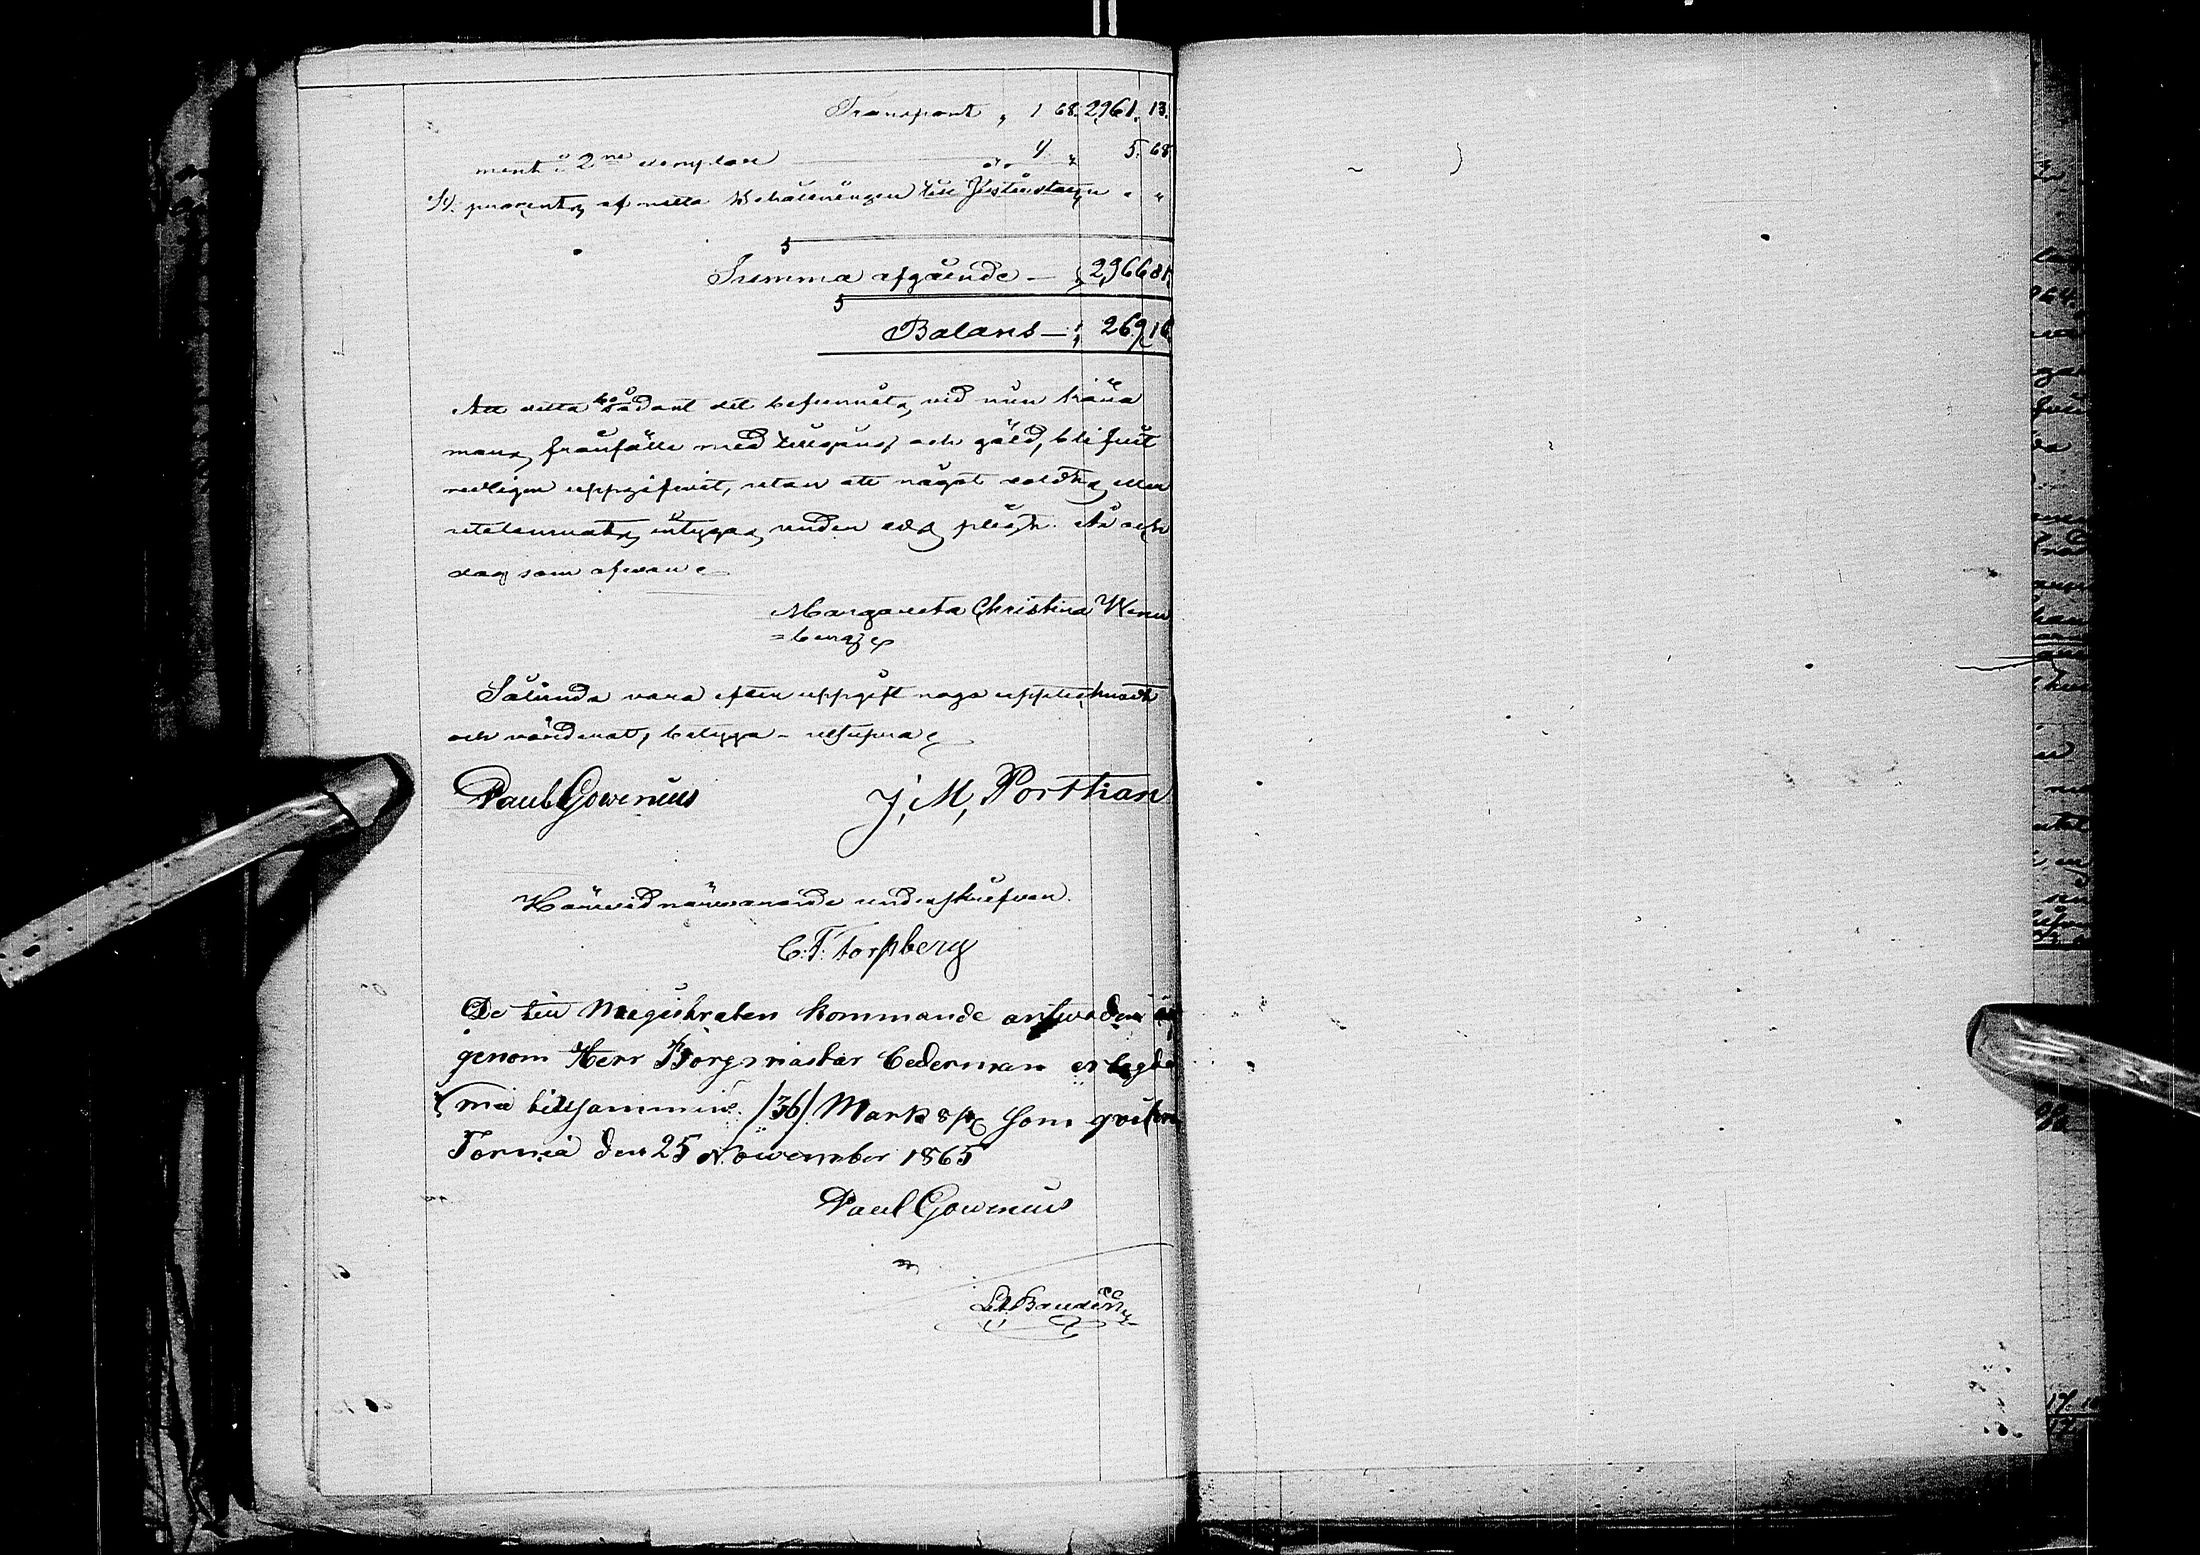 Transport „ 1 68. 2,961. 13.
ment i 2ne exemplar 4. „ 5. 68
1/4 procent af netta Behållningen till
Summa afgående — 2,966 81.
Balans — 269 16
Att detta bo sådant det befunnits vid min kära
mans frånfälle med tillgång och gäld, blifvit
redligen uppgifvit, utan att något doldts eller
utelemnats, intygas, under eds plickt. År och
dag som ofvan
Margareta Christina Wenn
=berg
Sålunda vara efter uppgift noga upptecknadt
och värderat, betyga – utsupra
Paul Govenius J, M, Porthan
Härvid närvarande underskrifven.
C. F. Forssberg
De till Magistraten kommande
genom Herr Borgmästar Cederman erlagde
med tillsammans /36/ Mark s/m Som
Torneå den 25 November 1865
Paul Govenius